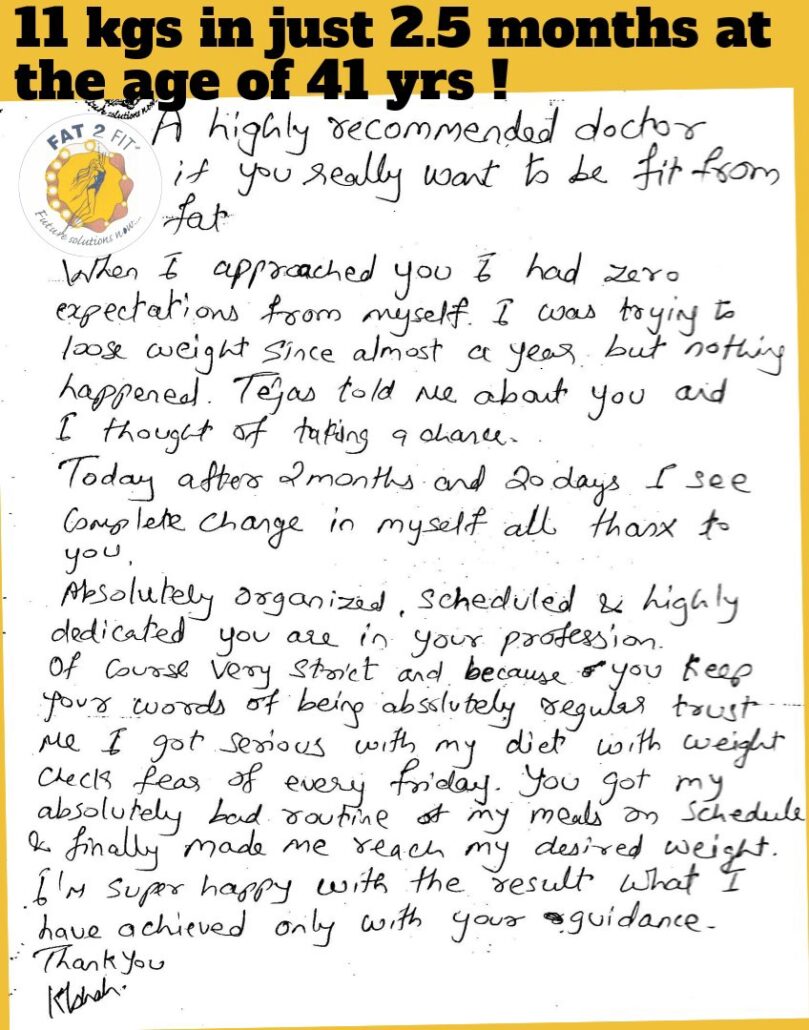 11 kgs in just 2.5 months at
the age of 41 yrs !
FAT 2 FIT
Future solutions now...
A highly recommended doctor
if you really want to be fit from
fat
When I approached you I had zero
expectations from myself. I was trying to
loose weight since almost a year but nothing
happened. Tejas told me about you and
I thought of taking a chance.
Today after 2 months and 20 days I see
Complete change in myself all thanx to
you.
Absolutely organized, scheduled & highly
dedicated you are in your profession.
Of course very strict and because you keep
your words of being absolutely regular trust
me I got serious with my diet with weight
check fear of every friday. You got my
absolutely bad routine of my meals on schedule
& finally made me reach my desired weight.
I'm super happy with the result what I
have achieved only with your guidance.
Thank you